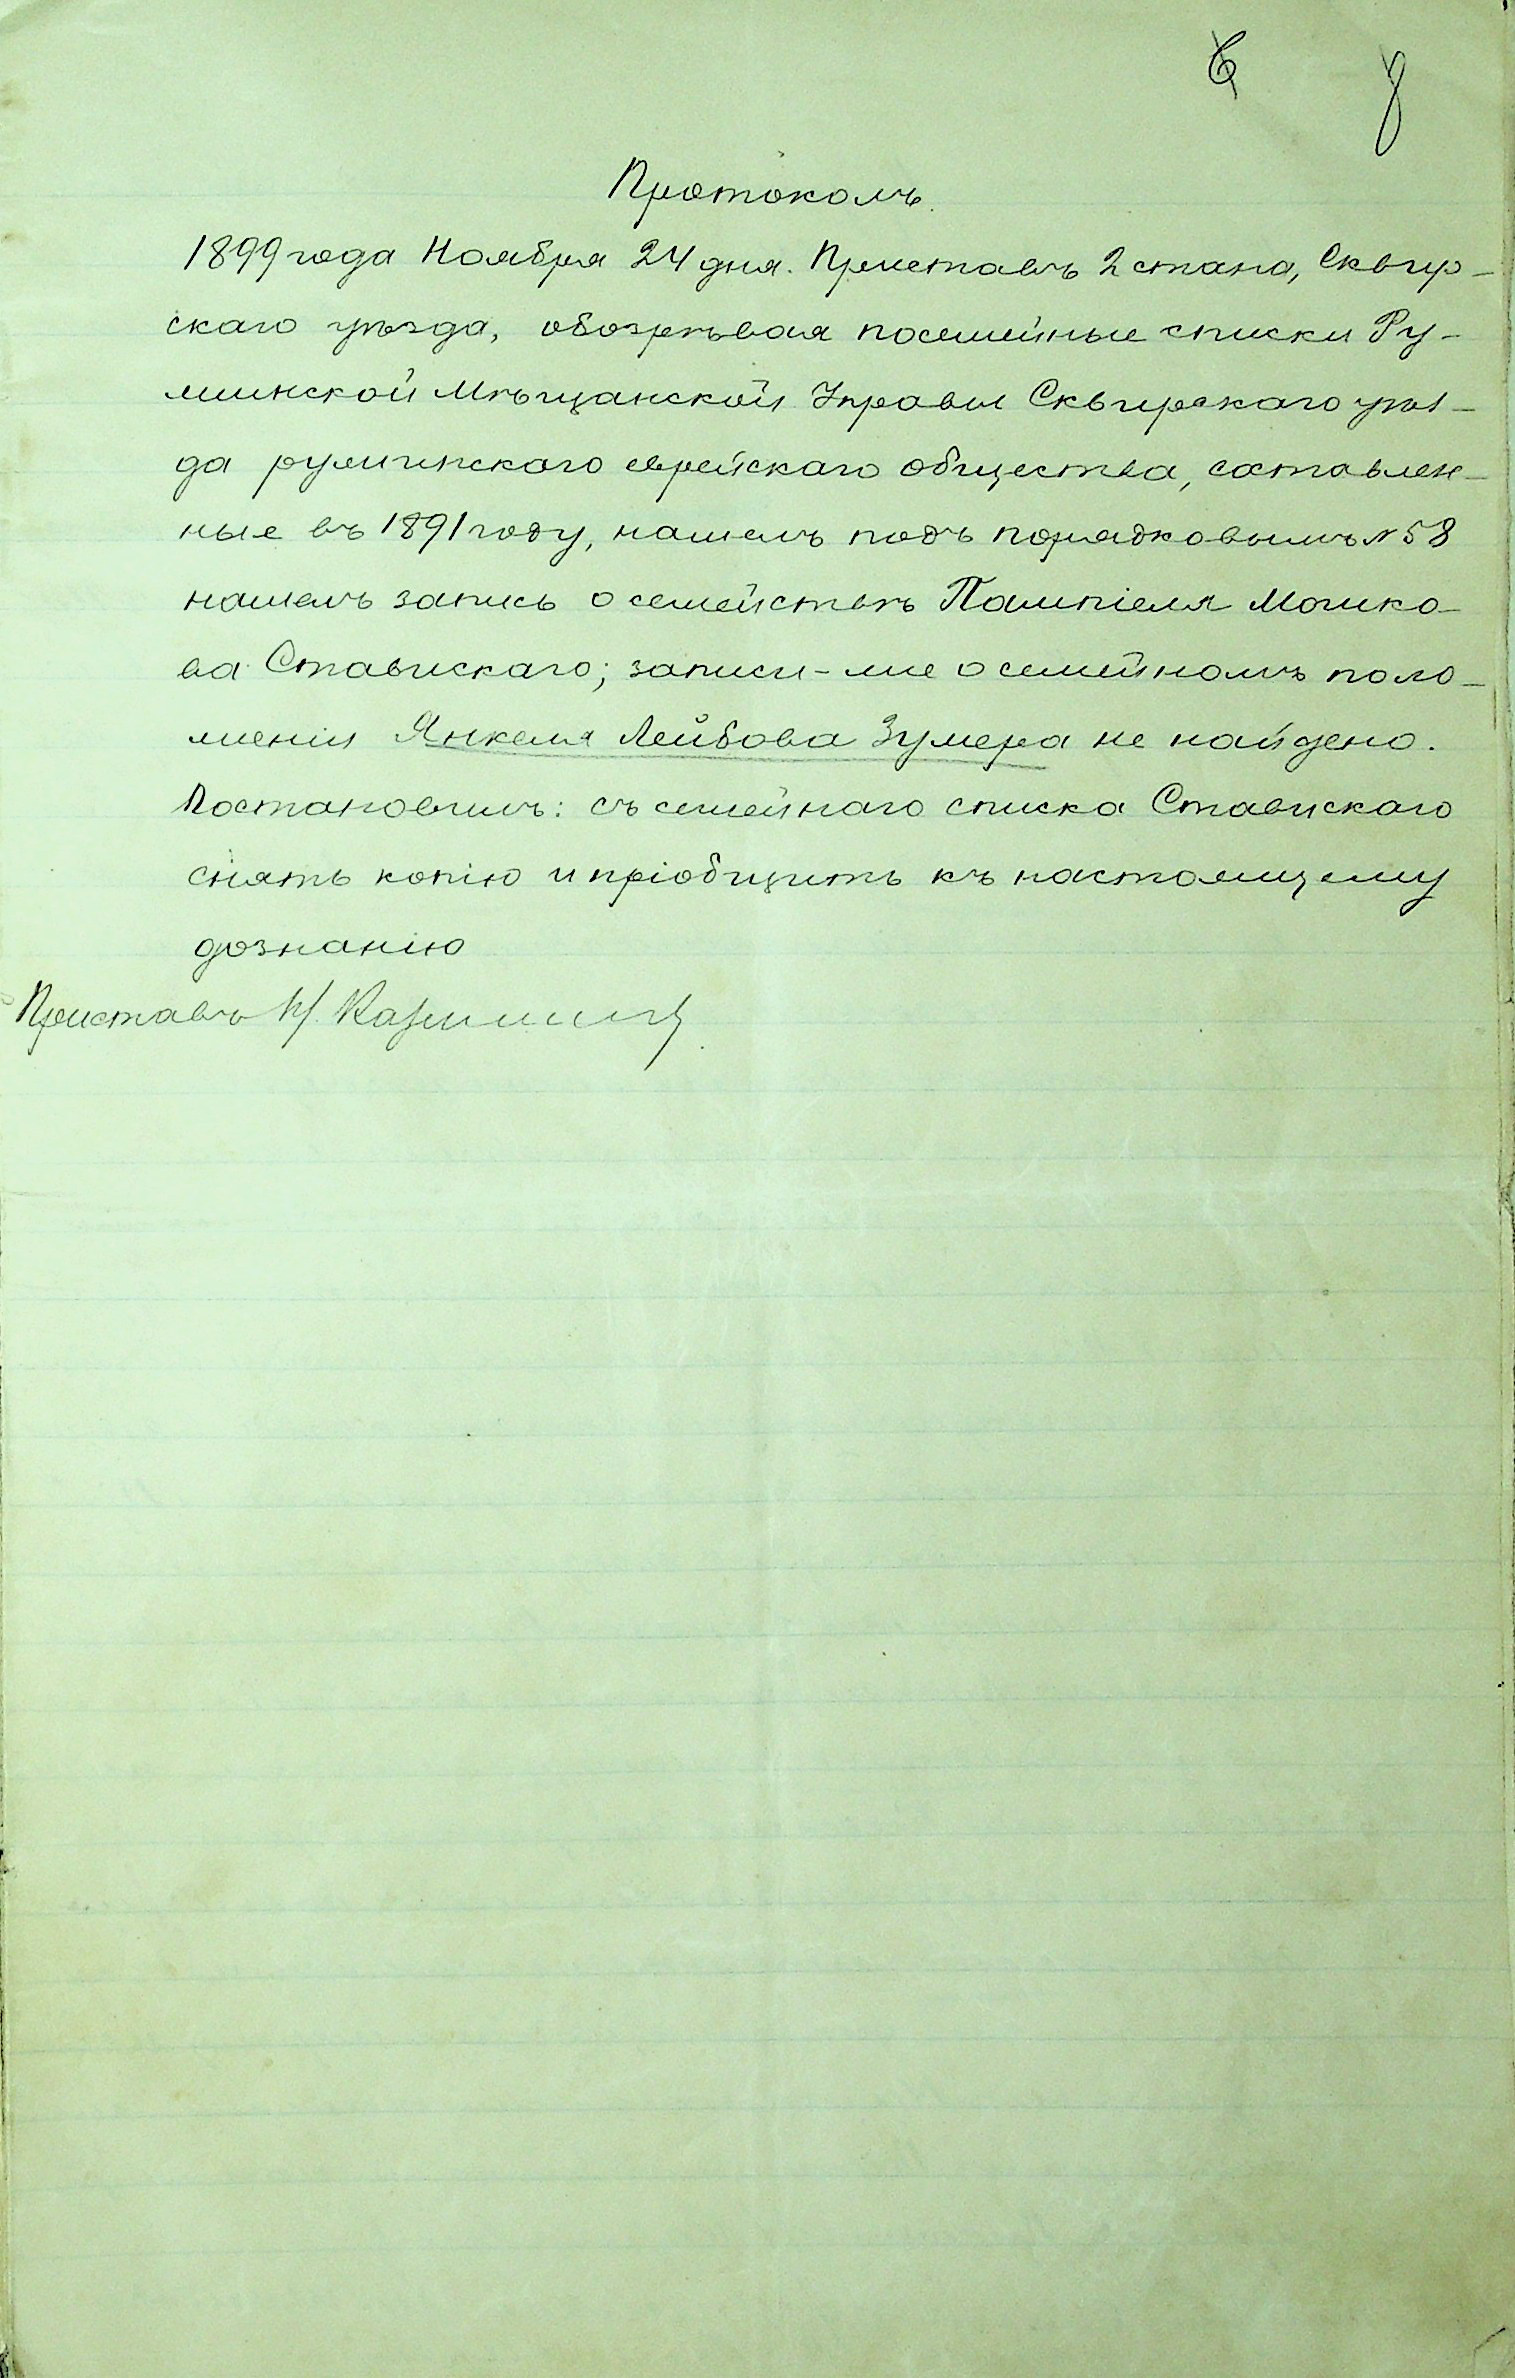 6 8
Протоколъ.
1899 года Ноября 24 дня. Приставъ 2 стана, Сквир-
скаго уѣзда, обозрѣвая посемейные списки Ру-
жинской Мѣщанской Управы Сквирскаго уѣз-
да ружинскаго еврейскаго общества, составлен-
ные въ 1891 году, нашелъ подъ порядковымъ № 58
нашелъ запись о семействѣ Пампіеля Мошко-
ва Ставискаго; записи-же о семейномъ поло-
женіи Янкеля Лейбова Зумера не найдено.
Постановилъ: съ семейнаго списка Ставискаго
снять копію и пріобщить къ настоящему
дознанію
Приставъ